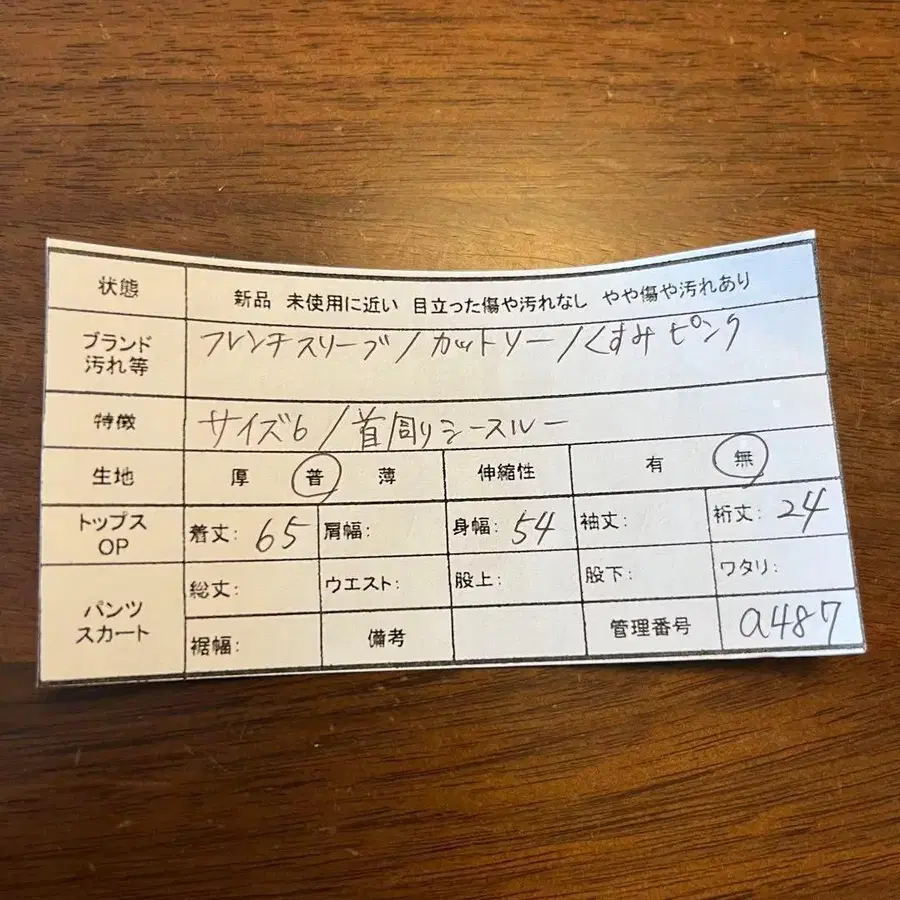 状態 新品 未使用に近い 目立った傷や汚れなし やや傷や汚れあり
ブランド フレンチスリーブ/カットソー/くすみピンク
汚れ等
特徴 サイズ6/首周りシースルー
生地 厚 普 薄 伸縮性 有 無
トップス OP 着丈: 65 肩幅: 身幅: 54 袖丈: 裄丈: 24
パンツ スカート 総丈: ウエスト: 股上: 股下: ワタリ:
裾幅: 備考 管理番号 a487